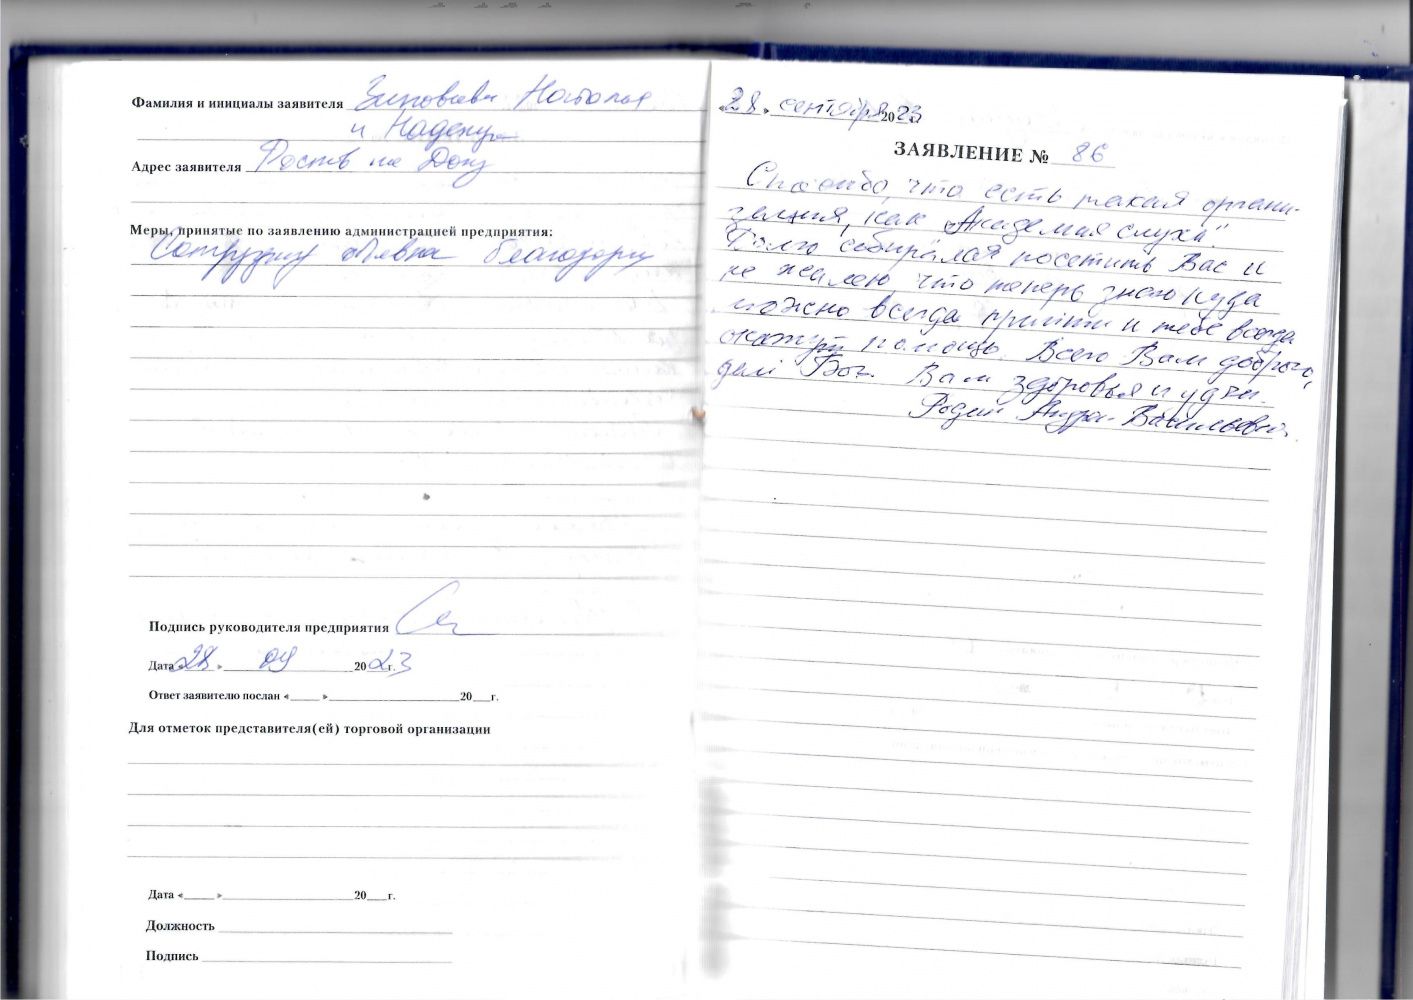 Фамилия и инициалы заявителя Зиновьева Наталья
и Надежда
Адрес заявителя Ростов на Дону
Меры, принятые по заявлению администрацией предприятия:
Сотруднику объявлена благодарность
Подпись руководителя предприятия
Дата «28» 09 2023 г.
Ответ заявителю послан «____» ____ 20__г.
Для отметок представителя(ей) торговой организации
Дата «____» ____ 20__г.
Должность
Подпись
«28» сентября 2023
ЗАЯВЛЕНИЕ № 86
Спасибо, что есть такая органи-
зация, как "Академия слуха".
Долго собирался посетить Вас и
не жалею, что теперь знаю куда
можно всегда прийти и тебе всегда
окажут помощь. Всего Вам доброго,
дай Бог Вам здоровья и удачи.
Родин Андрей Васильевич.